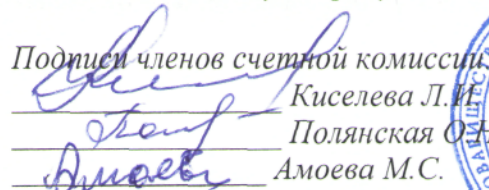 Подписи членов счетной комиссии
Киселева Л.И.
Полянская О.Н.
Амоева М.С.